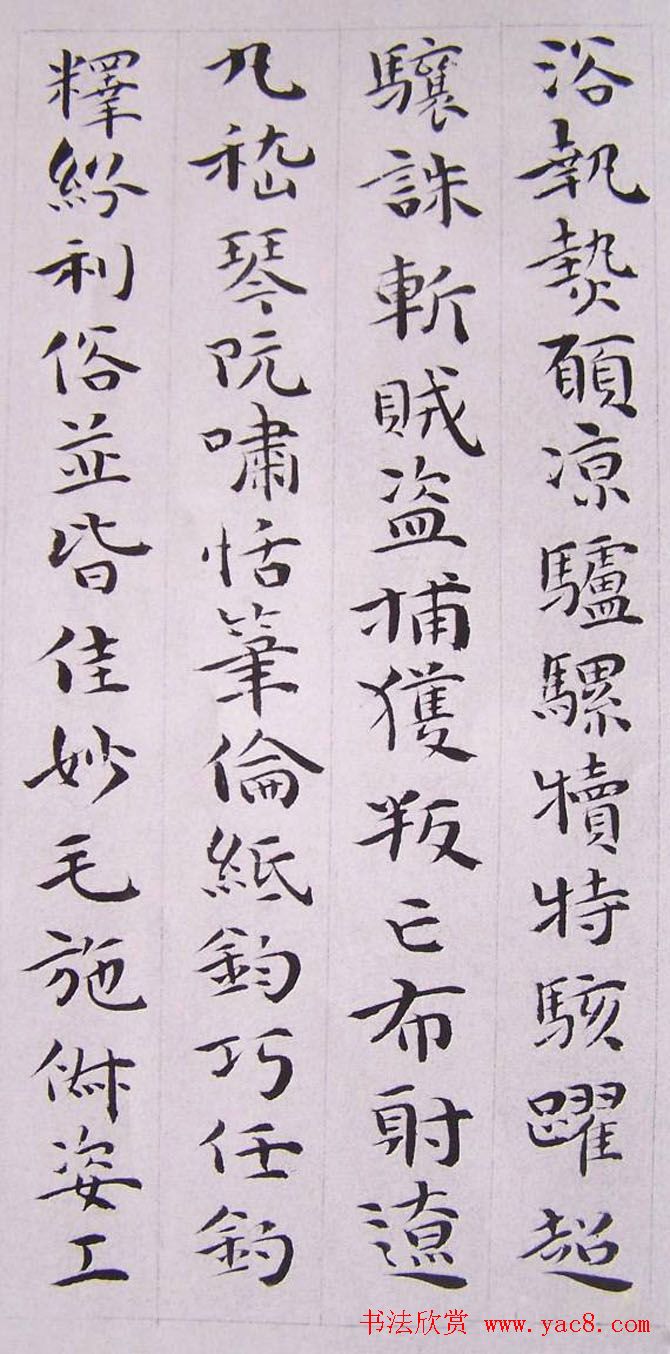 浴執熱願凉驢騾犢特駭躍超
驤誅斬賊盗捕獲叛亡布射遼
九嵇琴阮嘯恬筆倫紙鈞巧任釣
釋紛利俗並皆佳妙毛施俶姿工
书法欣赏 www.yac8.com